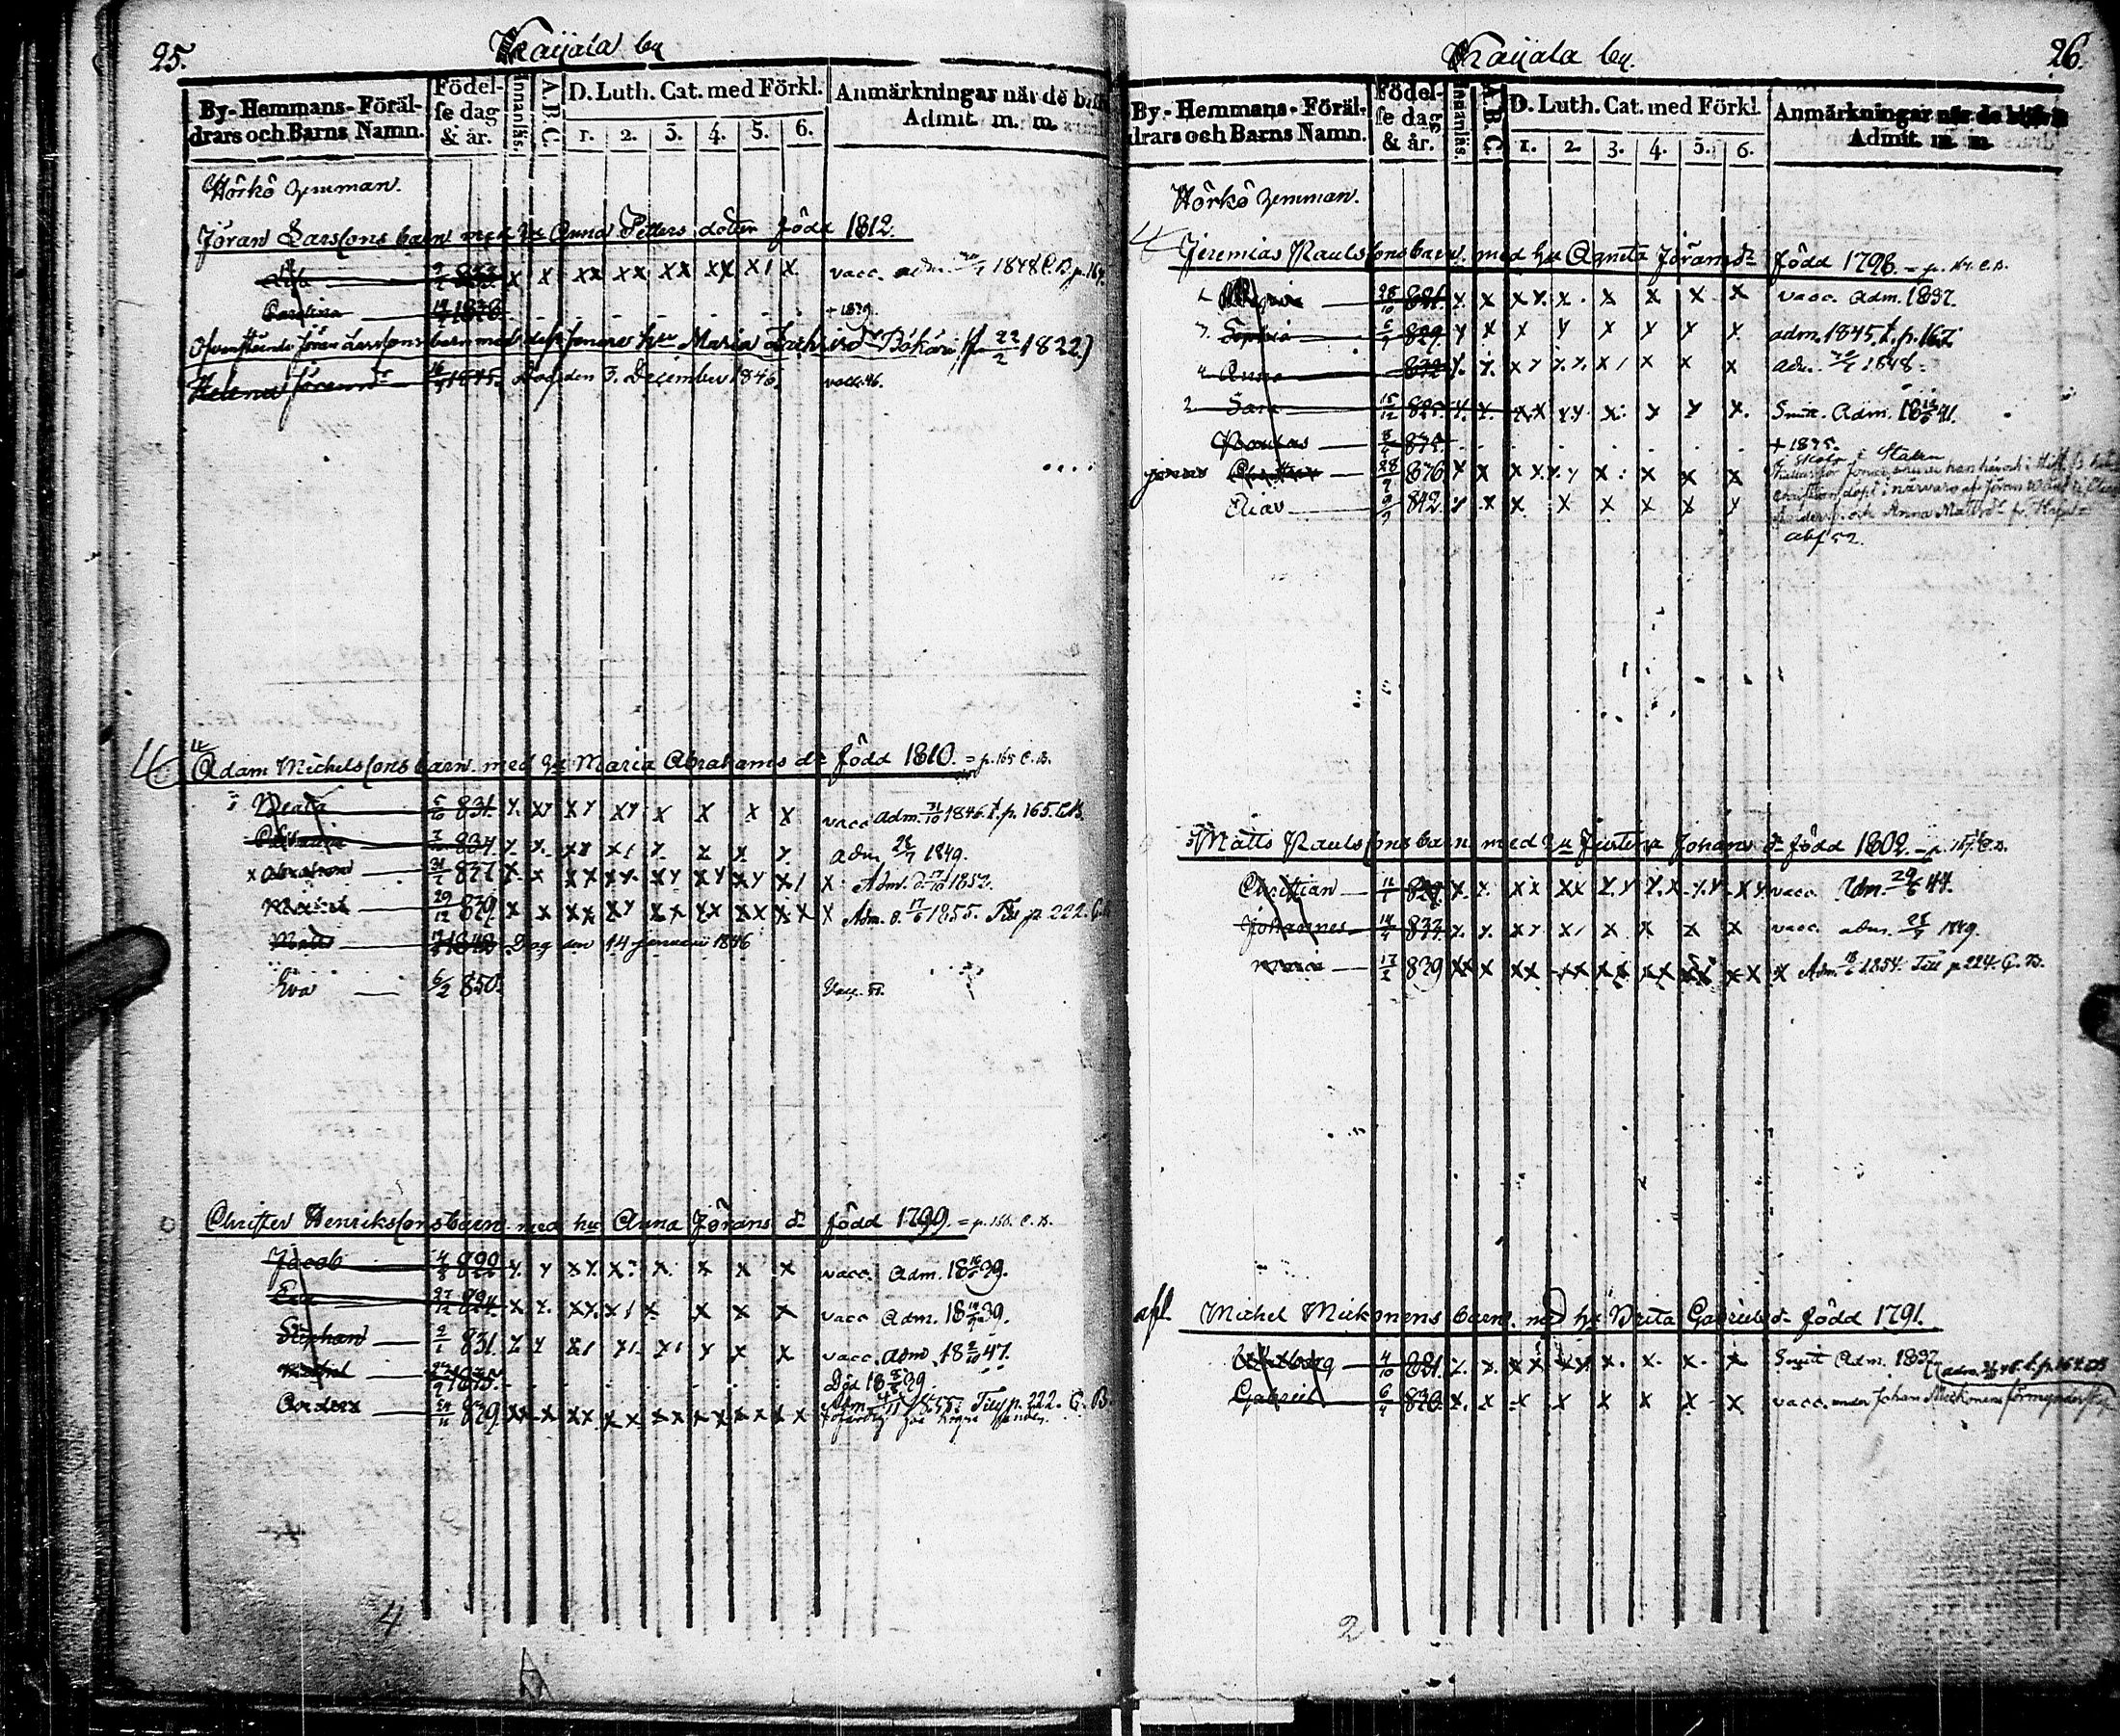 25.
Kaijala by
By- Hemmans- Föräl-
drars och Barns Namn.
Födel-
se dag
& år.
Innanläs.
A.B.C.
D. Luth. Cat. med Förkl.
1. 2. 3. 4. 5. 6.
Anmärkningar när de
Admit. m. m.
Hörkö hemman.
Jöran Larssons barn med hu Anna Petters dotter född 1812.
2/2 833 x x xx xx xx xx x x vacc. adm. 1848 C.B. p. 164.
Carolina 1838 + 1839.
Jöran Larssons barn med dess senare hu Maria (f. 22/2 1822)
Helena 16/4 1845. Dog den 3. December 1846. vacc. 46.
Adam Michelssons barn med hu Maria Abrahams dr född 1810. = p. 165 C.B.
Beata 5/10 831. x. xx xx xx x x x x vacc adm. 1846. t. p. 165. C.B.
834 x x. xx x x. x x x. adm 28/7 1849.
x Abraham 31/7 837 x. x xx xx. xx xx xx x x Adm. d. 1852.
Michel 29/12 839 x x xx xx xx xx xx xx x Adm. d. 17/6 1855. Till p. 222. C.B.
Matts 1842 Dog den 14 januari 1846
Eva 6/2 850. Vacc. 51.
Christer Henrikssons barn med hu Anna Jörans dr född 1799. = p. 166. C.B.
Jacob 4/8 822 x. x xx. x. x. x x x vacc. Adm. 1839.
Eva 27/12 824. x. x. xx. x x. x x x vacc Adm. 1839.
Stephan 2/1 831. x x x x x x x x vacc. Adm 18 2/10 47.
Michel 1835. Död 1839.
Anders 24/11 839. xx x xx xx xx xx xx x x Adm. 1855. Till p. 222. C.B.
4
Kaijala by.
26.
By- Hemmans- Föräl-
drars och Barns Namn.
Födel-
se dag
& år.
Innanläs.
A.B.C.
D. Luth. Cat. med Förkl.
1. 2. 3. 4. 5. 6.
Anmärkningar när de blifvit
Admit. m. m.
Hörkö hemman.
Jeremias Paulssons barn med hu Agneta Jörans dr född 1798. = p. 167. C.B.
821. x. x xx. x. x x x x vacc. Adm. 1837.
Sophia 6/7 829. x x x x x x x x. adm. 1845. t. p. 167.
Anna 832 x. x. xx x. x. x x x x x adm. 1848.
2 Sara 15/12 825. x. x. xx xx x. x x x. Smitt. Adm. 1841.
Paulus 835 + 1835.
Jonas Christian 28/9 836 x x xx x. x x. x x x
Elias 9/7 842. x x x x x x x x
Anna Matts dr
abf. 52.
Matts Paulssons barn med hu Justina Johans dr född 1802. = p. 167. C.B.
Christian 11/1 829. x. x. xx xx x. x x. x x. x x x vacc. Adm. 29/6 44.
Johannes 14/4 832. x. x. xx. x x x x x vacc. adm. 28/7 1849.
Maria 17/2 839 xx x xx xx xx xx xx xx x Adm. 18/6 1854. Till p. 224. C.B.
afl. Michel Mickonens barn med hu Brita Gabriels dr född 1791.
Walborg 4/10 821. x. x. xx xx x. x. x. x. Smitt Adm. 1837
Gabriel 6/4 830. x. x x x x x x x vacc. under Johan Mickonens förmynderskap
2